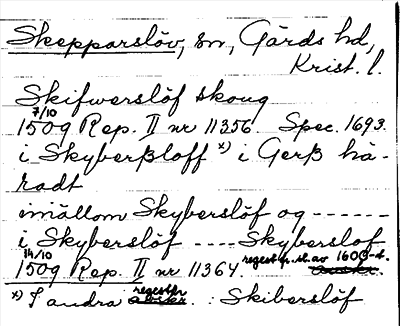 Skepparslöv, sn, Gärds hd,
Krist. l.
Skifwerslöf skoug
7/10
1509 Rep. II nr 11356. Spec. 1693.
i Skyberßloff x) i Gerß hä-
radt
imällom Skyberslöf og ------
i Skyberslöf ---- Skyberslof.
14/10
1509 Rep. II nr 11364. regest fr. sl. av 1600-t.
x) I andra regestfr : Skiberslöf